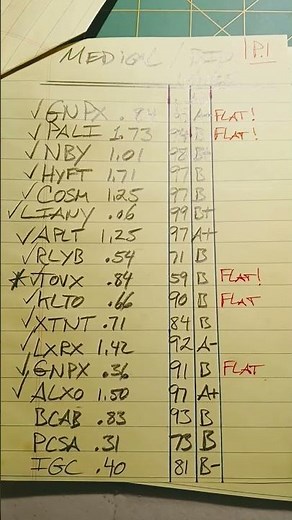 MEDICAL / BIO P.1
✓ GNPX .94 A- FLAT!
✓ PALI 1.73 B FLAT!
✓ NBY 1.01 98 B+
✓ HYFT 1.71 97 B
✓ COSM 1.25 97 B
✓ LIANY .06 99 B+
✓ APLT 1.25 97 A+
✓ RLYB .54 71 B
*✓ TOVX .84 59 B FLAT!
✓ KLTO .66 90 B FLAT
✓ XTNT .71 84 B
✓ LXRX 1.42 92 A-
✓ GNPX .36 91 B FLAT
✓ ALXO 1.50 97 A+
BCAB .83 93 B
PCSA .31 73 B
IGC .40 81 B-